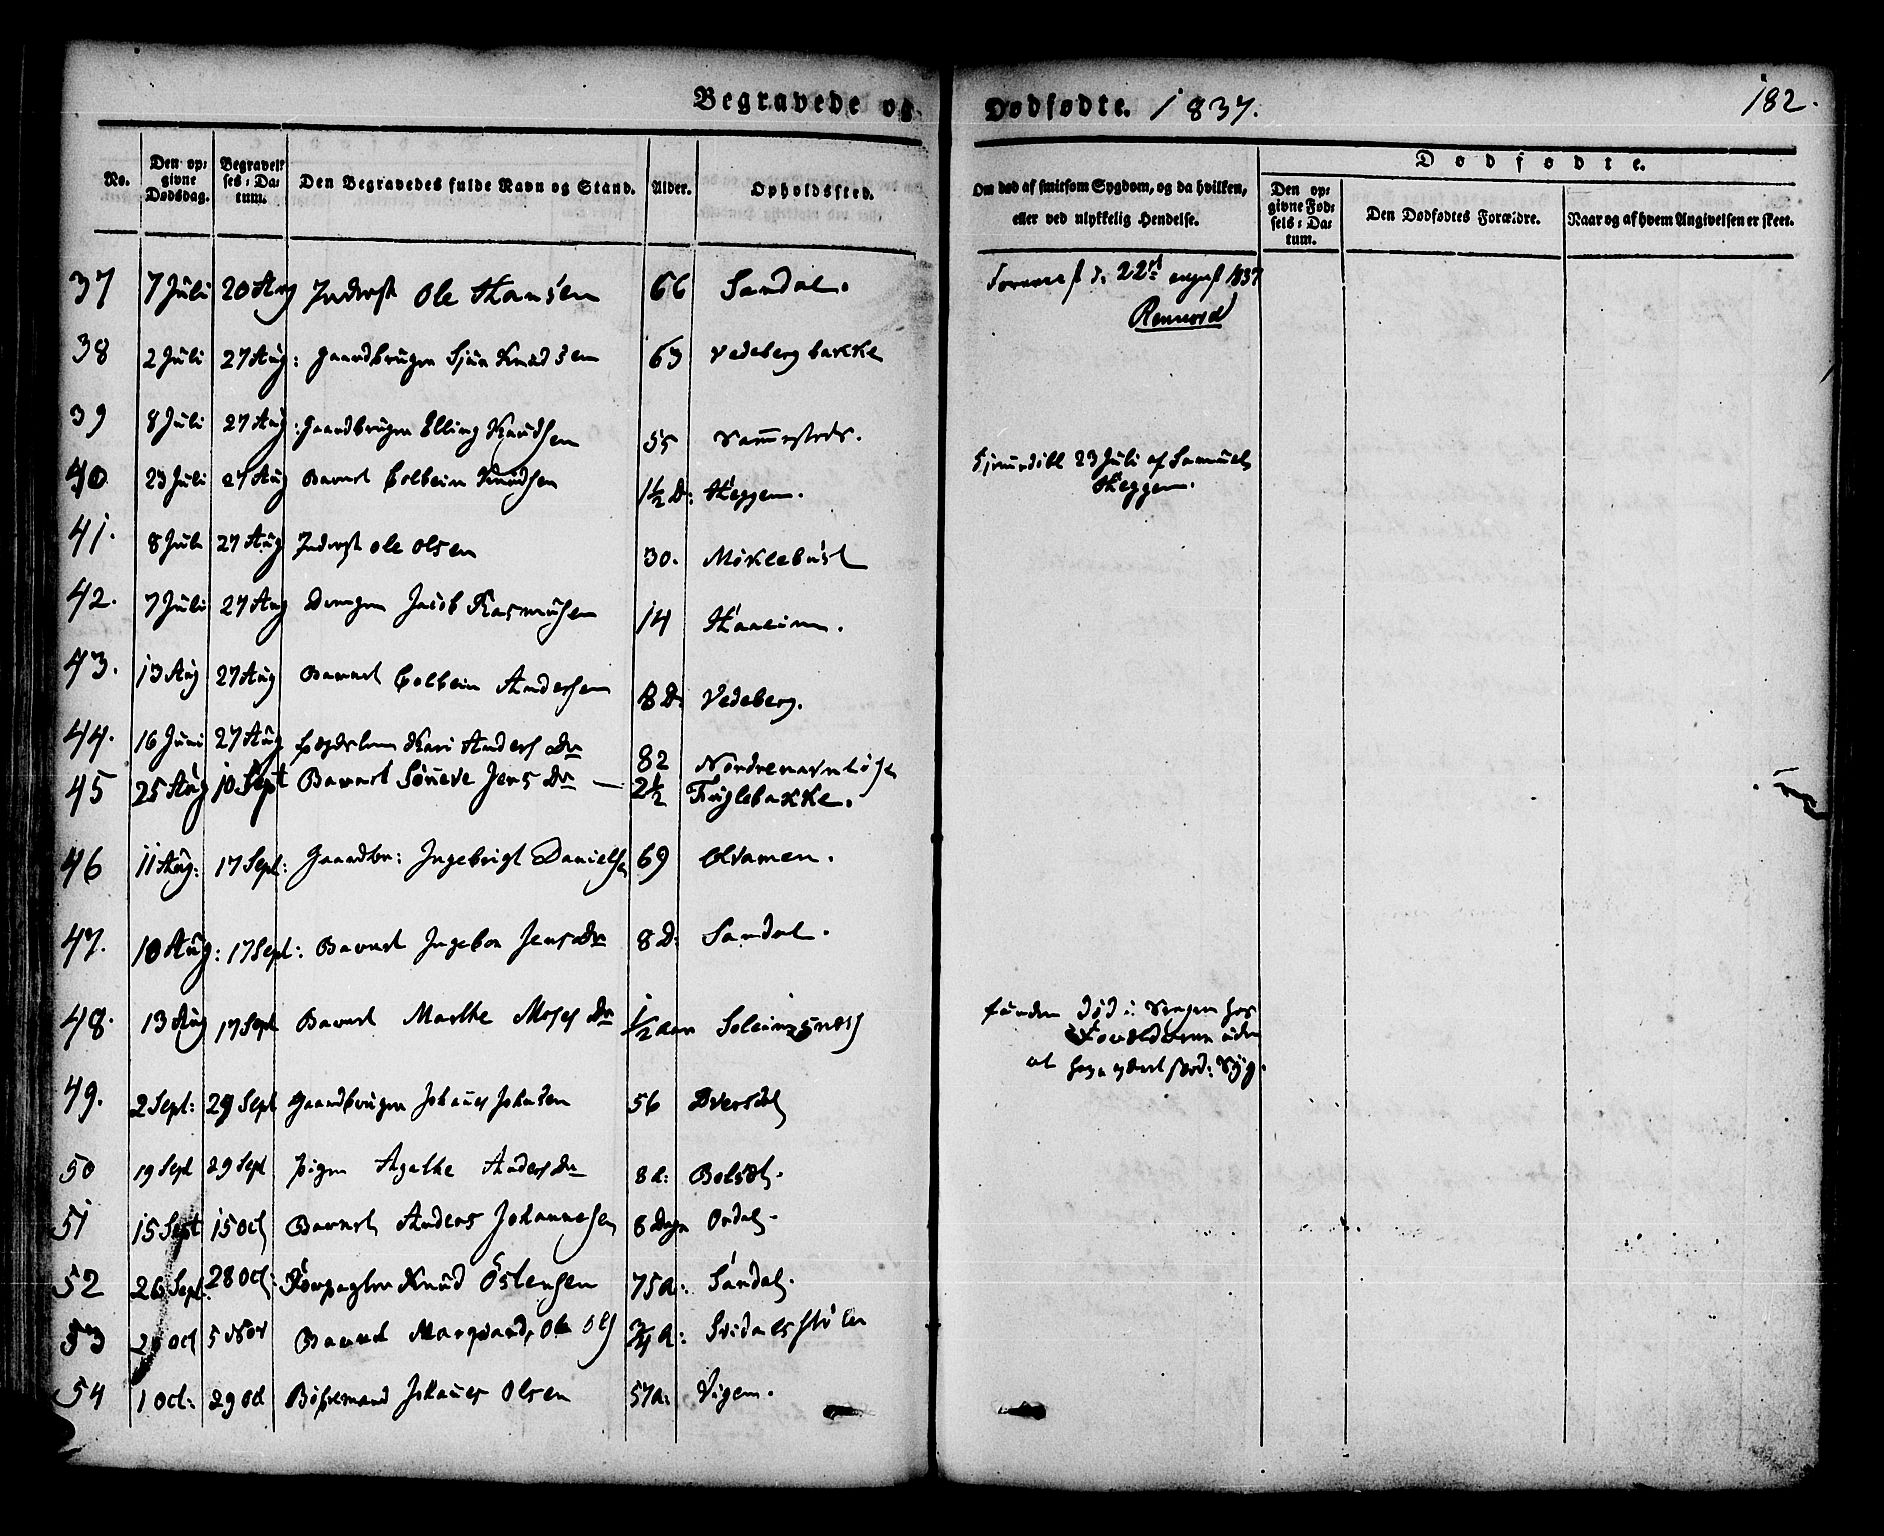 Begravede og Dødfødte. 1837.
182.
No.
Den op-
givne
Dødsdag.
Begravel-
ses-Da-
tum.
Den Begravedes fulde Navn og Stand.
Alder.
Opholdssted.
Om død af smitsom Sygdom, og da hvilken,
eller ved ulykkelig Hendelse.
Dødfødte.
Den op-
givne Fød-
sels-Da-
tum.
Den Dødfødtes Forældre.
Naar og af hvem Angivelsen er skeet.
37 7 Juli 20 Aug Inderst Ole Hansen 66 Sandal. d. 22 august 1837
Rennord
38 2 Juli 27 Aug: Gaardbruger Knudsen 63 Vedeberg bakke
39 8 Juli 27 Aug: Gaardbruger Elling Knudsen 55 Sammesteds.
40 23 Juli 27 Aug Barnet Colbein Knudsen 1½ D: Heggem. Hjemdøbt 23 Juli af Samuel
Heggem.
41. 8 Juli 27 Aug Inderst Ole Olsen 30. Møklebust
42. 7 Juli 27 Aug Drengen Jacob Rasmusen 14
43. 13 Aug 27 Aug Barnet Colbein Andersen 8 D. Vedeberg.
44. 16 Juni 27 Aug Kari Anders Dr 82
45 25 Aug 10 Sept Barnet Sønneve Jens Dr — 2½ Fuglebakke.
46 11 Aug: 17 Sept: Gaardbr: Ingebrigt Danielsen 69
47. 10 Aug: 17 Sept: Barnet Ingebor Jens Dr 8 D: Sandal.
48. 13 Aug 17 Sept Barnet Marthe Moses Dr ½ aar funden død i Sengen hos
Forældrene uden
at have været syg.
49. 2 Sept: 29 Sept Gaardbruger Johanes Johnsen 56 Dversdal
50 19 Sept 29 Sept Pigen Agathe Anders Dr 8 a: Bolsæt.
51 15 Sept 15 Oct Barnet Anders Johannesen 8 Dage Ordal.
52 26 Sept: 28 Oct: Knud Østensen 75 a: Sandal.
53 Oct 5 Nov Barnet Ole Ols ¾ A:
54 1 Oct: 29 Oct Johanes Olsen 57 a: Vigem.